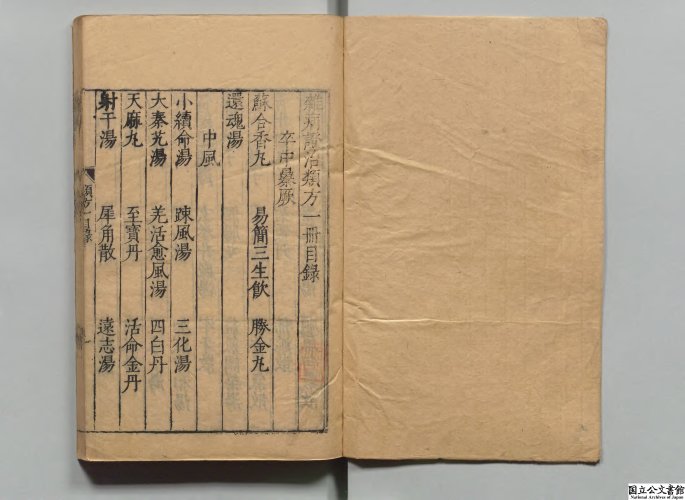 雜病證治類方一冊目錄
卒中暴厥
蘇合香丸 易簡三生飲 勝金丸
還魂湯
中風
小續命湯 踈風湯 三化湯
大秦艽湯 羌活愈風湯 四白丹
天麻丸 至寶丹 活命金丹
射干湯 犀角散 遠志湯
類方一目錄
国立公文書館
National Archives of Japan